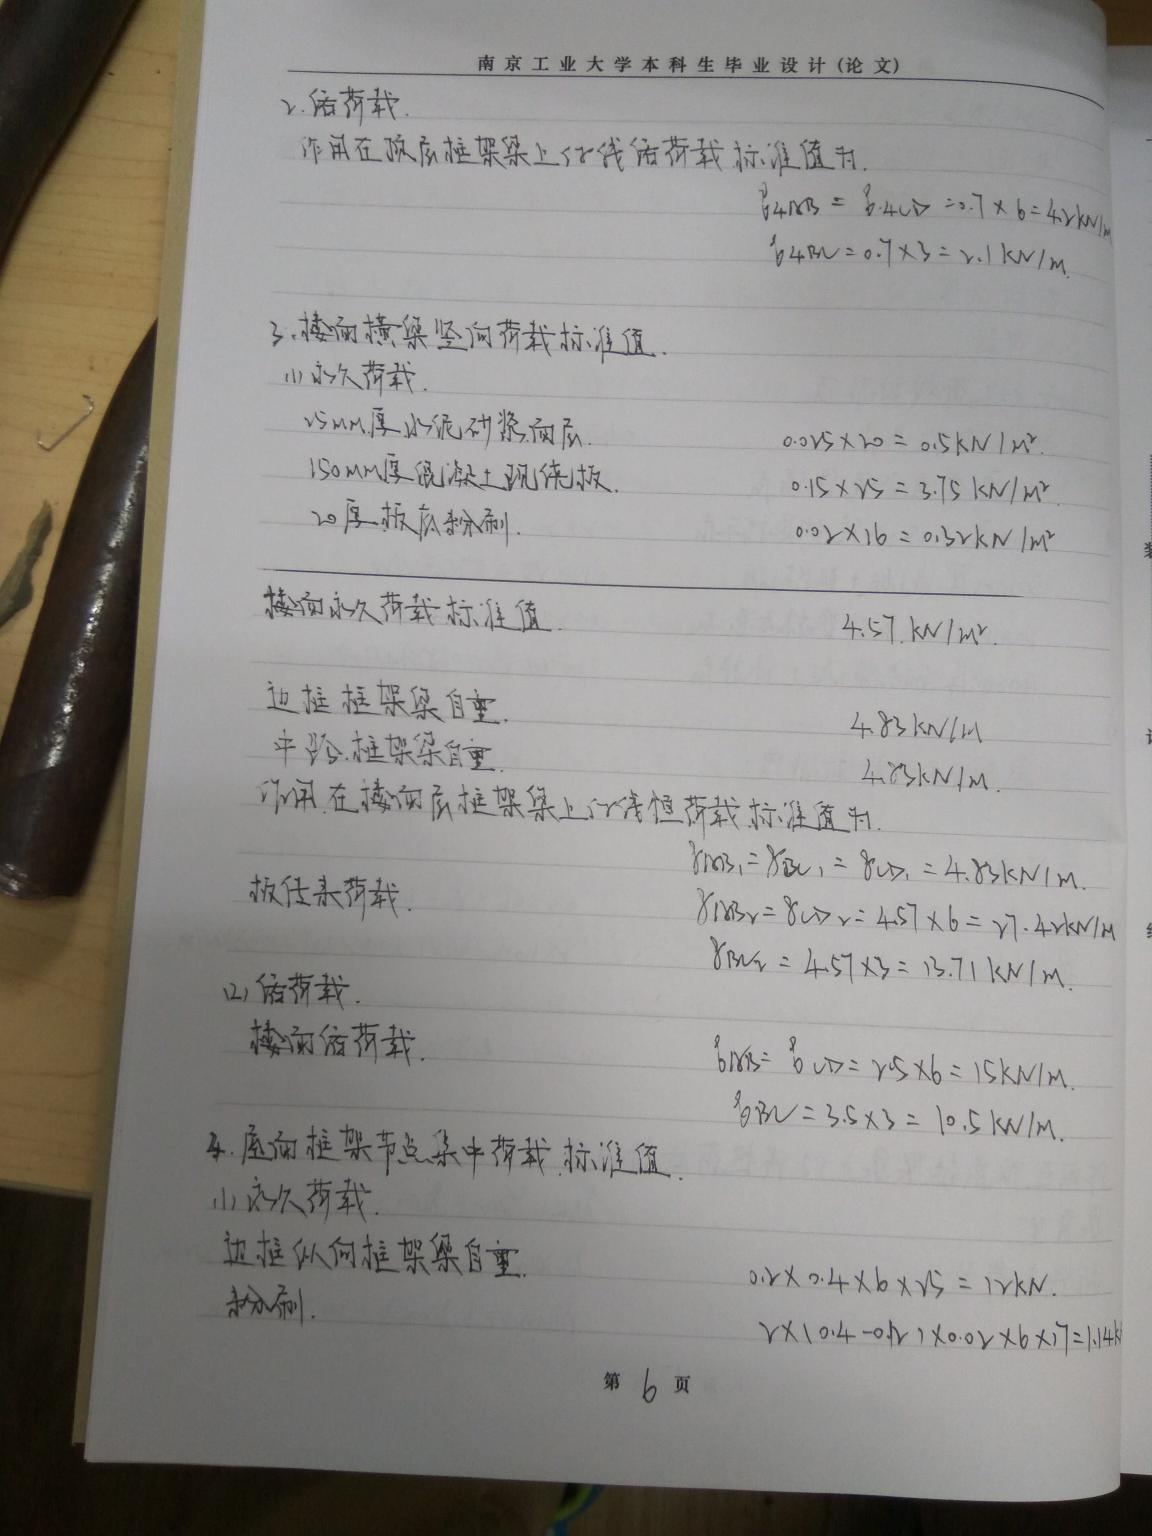 南京工业大学本科生毕业设计(论文)
2.活荷载.
作用在顶层框架梁上的线活荷载标准值为.
q4AB = q4CD = 0.7×6 = 4.2kN/m
q4BC = 0.7×3 = 2.1kN/m.
3.楼面横梁竖向荷载标准值.
(1)永久荷载.
25mm厚水泥砂浆面层. 0.025×20 = 0.5kN/m².
150mm厚混凝土现浇板. 0.15×25 = 3.75kN/m²
20厚板底粉刷. 0.02×16 = 0.32kN/m²
楼面永久荷载标准值. 4.57kN/m².
边框框架梁自重. 4.83kN/m
中跨框架梁自重. 4.83kN/m.
作用在楼面层框架梁上的线恒荷载标准值为.
gAB1 = gBC1 = gCD1 = 4.83kN/m.
板传来荷载. gAB2 = gCD2 = 4.57×6 = 27.42kN/m
gBC2 = 4.57×3 = 13.71kN/m.
(2)活荷载.
楼面活荷载. qAB = qCD = 2.5×6 = 15kN/m.
qBC = 3.5×3 = 10.5kN/m.
4.屋面框架节点集中荷载标准值.
(1)永久荷载.
边框纵向框架梁自重. 0.2×0.4×6×25 = 12kN.
粉刷. 2×(0.4-0.12)×0.02×6×17=1.14k
第 6 页